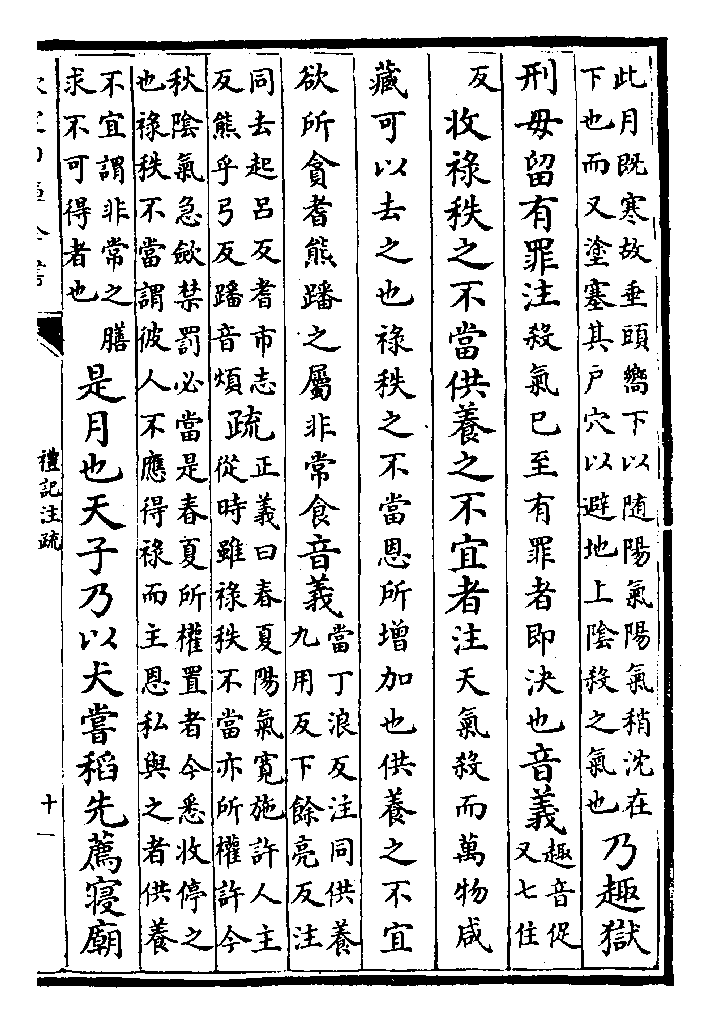 此月既寒故垂頭嚮下以随陽氣陽氣稍沈在
下也而又塗塞其戸穴以避地上陰殺之氣也
乃趣獄
刑毋留有罪注殺氣已至有罪者即決也音義
趣音促
又七住
反
收祿秩之不當供養之不宜者注天氣殺而萬物咸
藏可以去之也祿秩之不當恩所增加也供養之不宜
欲所貪耆熊蹯之屬非常食音義
當丁浪反注同供養
九用反下餘亮反注
同去起呂反耆市志
反熊乎弓反蹯音煩
疏
正義曰春夏陽氣寛施許人主
從時雖祿秩不當亦所權許今
秋陰氣急斂禁罰必當是春夏所權置者今悉收停之
也祿秩不當謂彼人不應得祿而主恩私與之者供養
不宜謂非常之膳
求不可得者也
是月也天子乃以犬嘗稻先薦寢廟
禮記注疏
十一